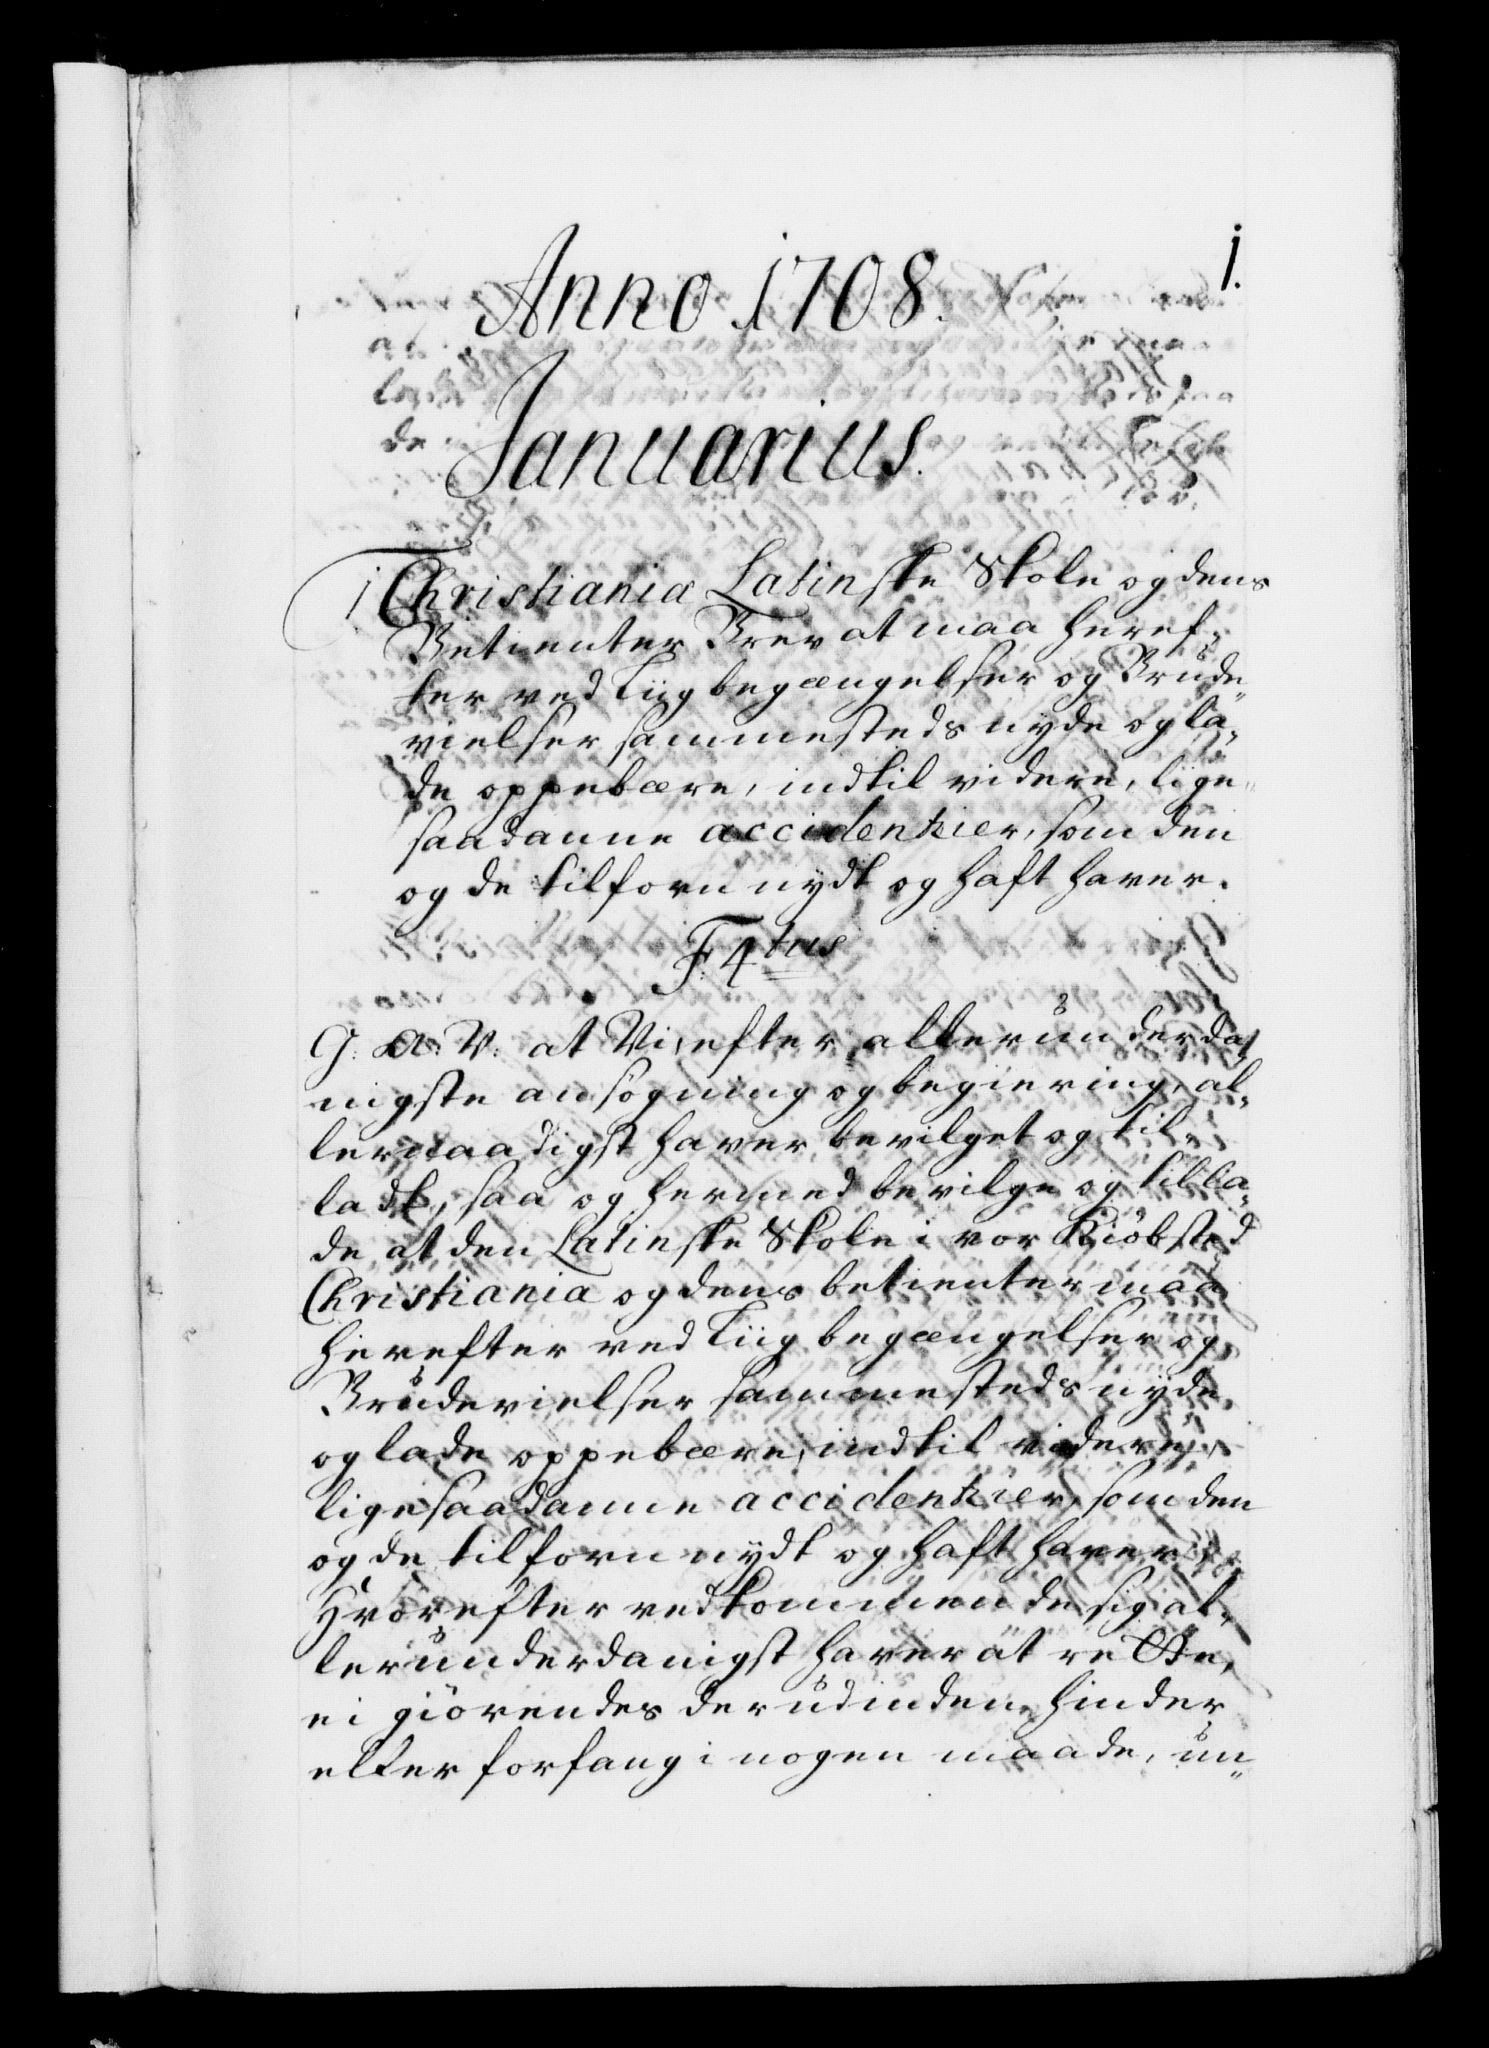 1.
Anno 1708.
Januarius.
1 Christiania Latinske Skole og dens
Betienter Brev at maa heref-
ter ved Liigbegængelser og Brude-
vielser sammesteds nyde og la-
de oppebære, indtil videre, lige
saadanne accidentzier, som den
og de tilforn nydt og haft haver.
F. 4tus
G: A: V: at Vi, efter allerunderda-
nigste ansøgning og begiering, al-
lernaadigst haver bevilget og til-
ladt, saa og hermed bevilge og tilla-
de at den Latinske Skole i vor Kiöbsted
Christiania og dens betienter maa
herefter ved Liigbegængelser og
Brudevielser sammesteds nyde
og lade oppebære, indtil videre,
ligesaadanne accidentzier, som den
og de tilforn nydt og haft haver,
Hvorefter vedkommende sig al-
lerunderdanigst haver at rette,
ei giörendes derudinden hinder
eller forfang i nogen maade, un-